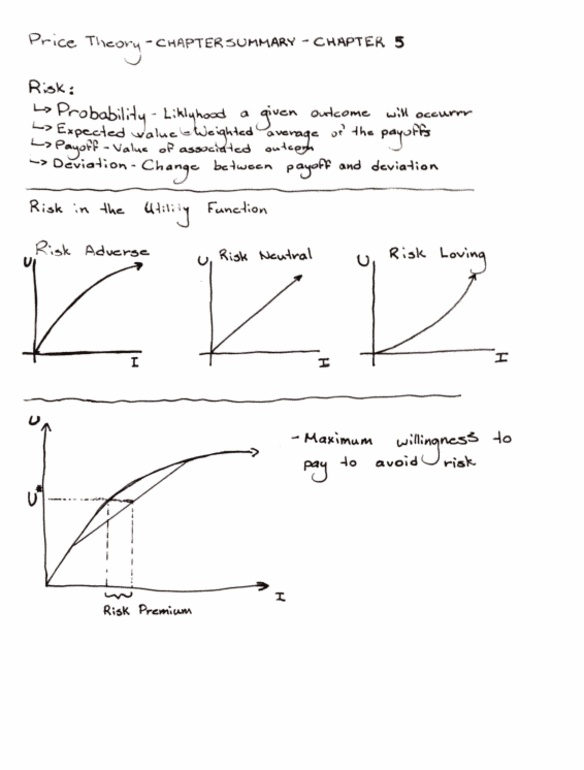 Price Theory - CHAPTER SUMMARY - CHAPTER 5
Risk:
↳ Probability - Liklyhood a given outcome will occurrr
↳ Expected value = Weighted average of the payoffs
↳ Payoff - Value of associated outcom
↳ Deviation - Change between payoff and deviation
Risk in the Utility Function
Risk Adverse
U
I
Risk Neutral
U
I
Risk Loving
U
I
U
U*
I
Risk Premium
- Maximum willingness to
pay to avoid risk